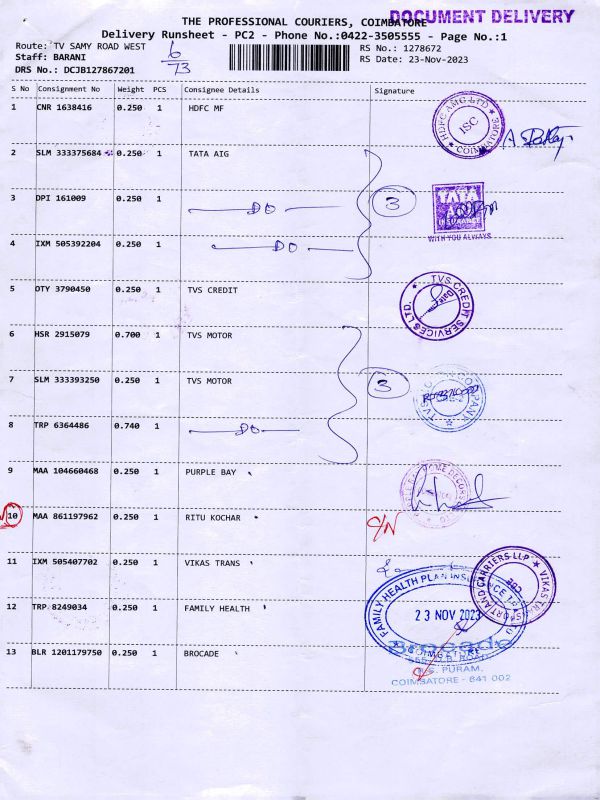 DOCUMENT DELIVERY
THE PROFESSIONAL COURIERS, COIMBATORE
Delivery Runsheet - PC2 - Phone No.:0422-3505555 - Page No.:1
Route: TV SAMY ROAD WEST
RS No.: 1278672
Staff: BARANI
RS Date: 23-Nov-2023
DRS No.: DCJB127867201
6
73
S No Consignment No Weight PCS Consignee Details Signature
1 CNR 1638416 0.250 1 HDFC MF
HDFC AMC LTD
ISC
COIMBATORE
2 SLM 333375684 0.250 1 TATA AIG
3 DPI 161009 0.250 1 DO
3
TATA
AIG
INSURANCE
WITH YOU ALWAYS
4 IXM 505392204 0.250 1 DO
5 OTY 3790450 0.250 1 TVS CREDIT
TVS CREDIT SERVICES LTD.
6 HSR 2915079 0.700 1 TVS MOTOR
7 SLM 333393250 0.250 1 TVS MOTOR
3
8 TRP 6364486 0.740 1 DO
9 MAA 104660468 0.250 1 PURPLE BAY
10 MAA 861197962 0.250 1 RITU KOCHAR
C/N
11 IXM 505407702 0.250 1 VIKAS TRANS
12 TRP 8249034 0.250 1 FAMILY HEALTH
FAMILY HEALTH PLAN
23 NOV 2023
COIMBATORE
13 BLR 1201179750 0.250 1 BROCADE
Brocade
R.S. PURAM,
COIMBATORE - 641 002